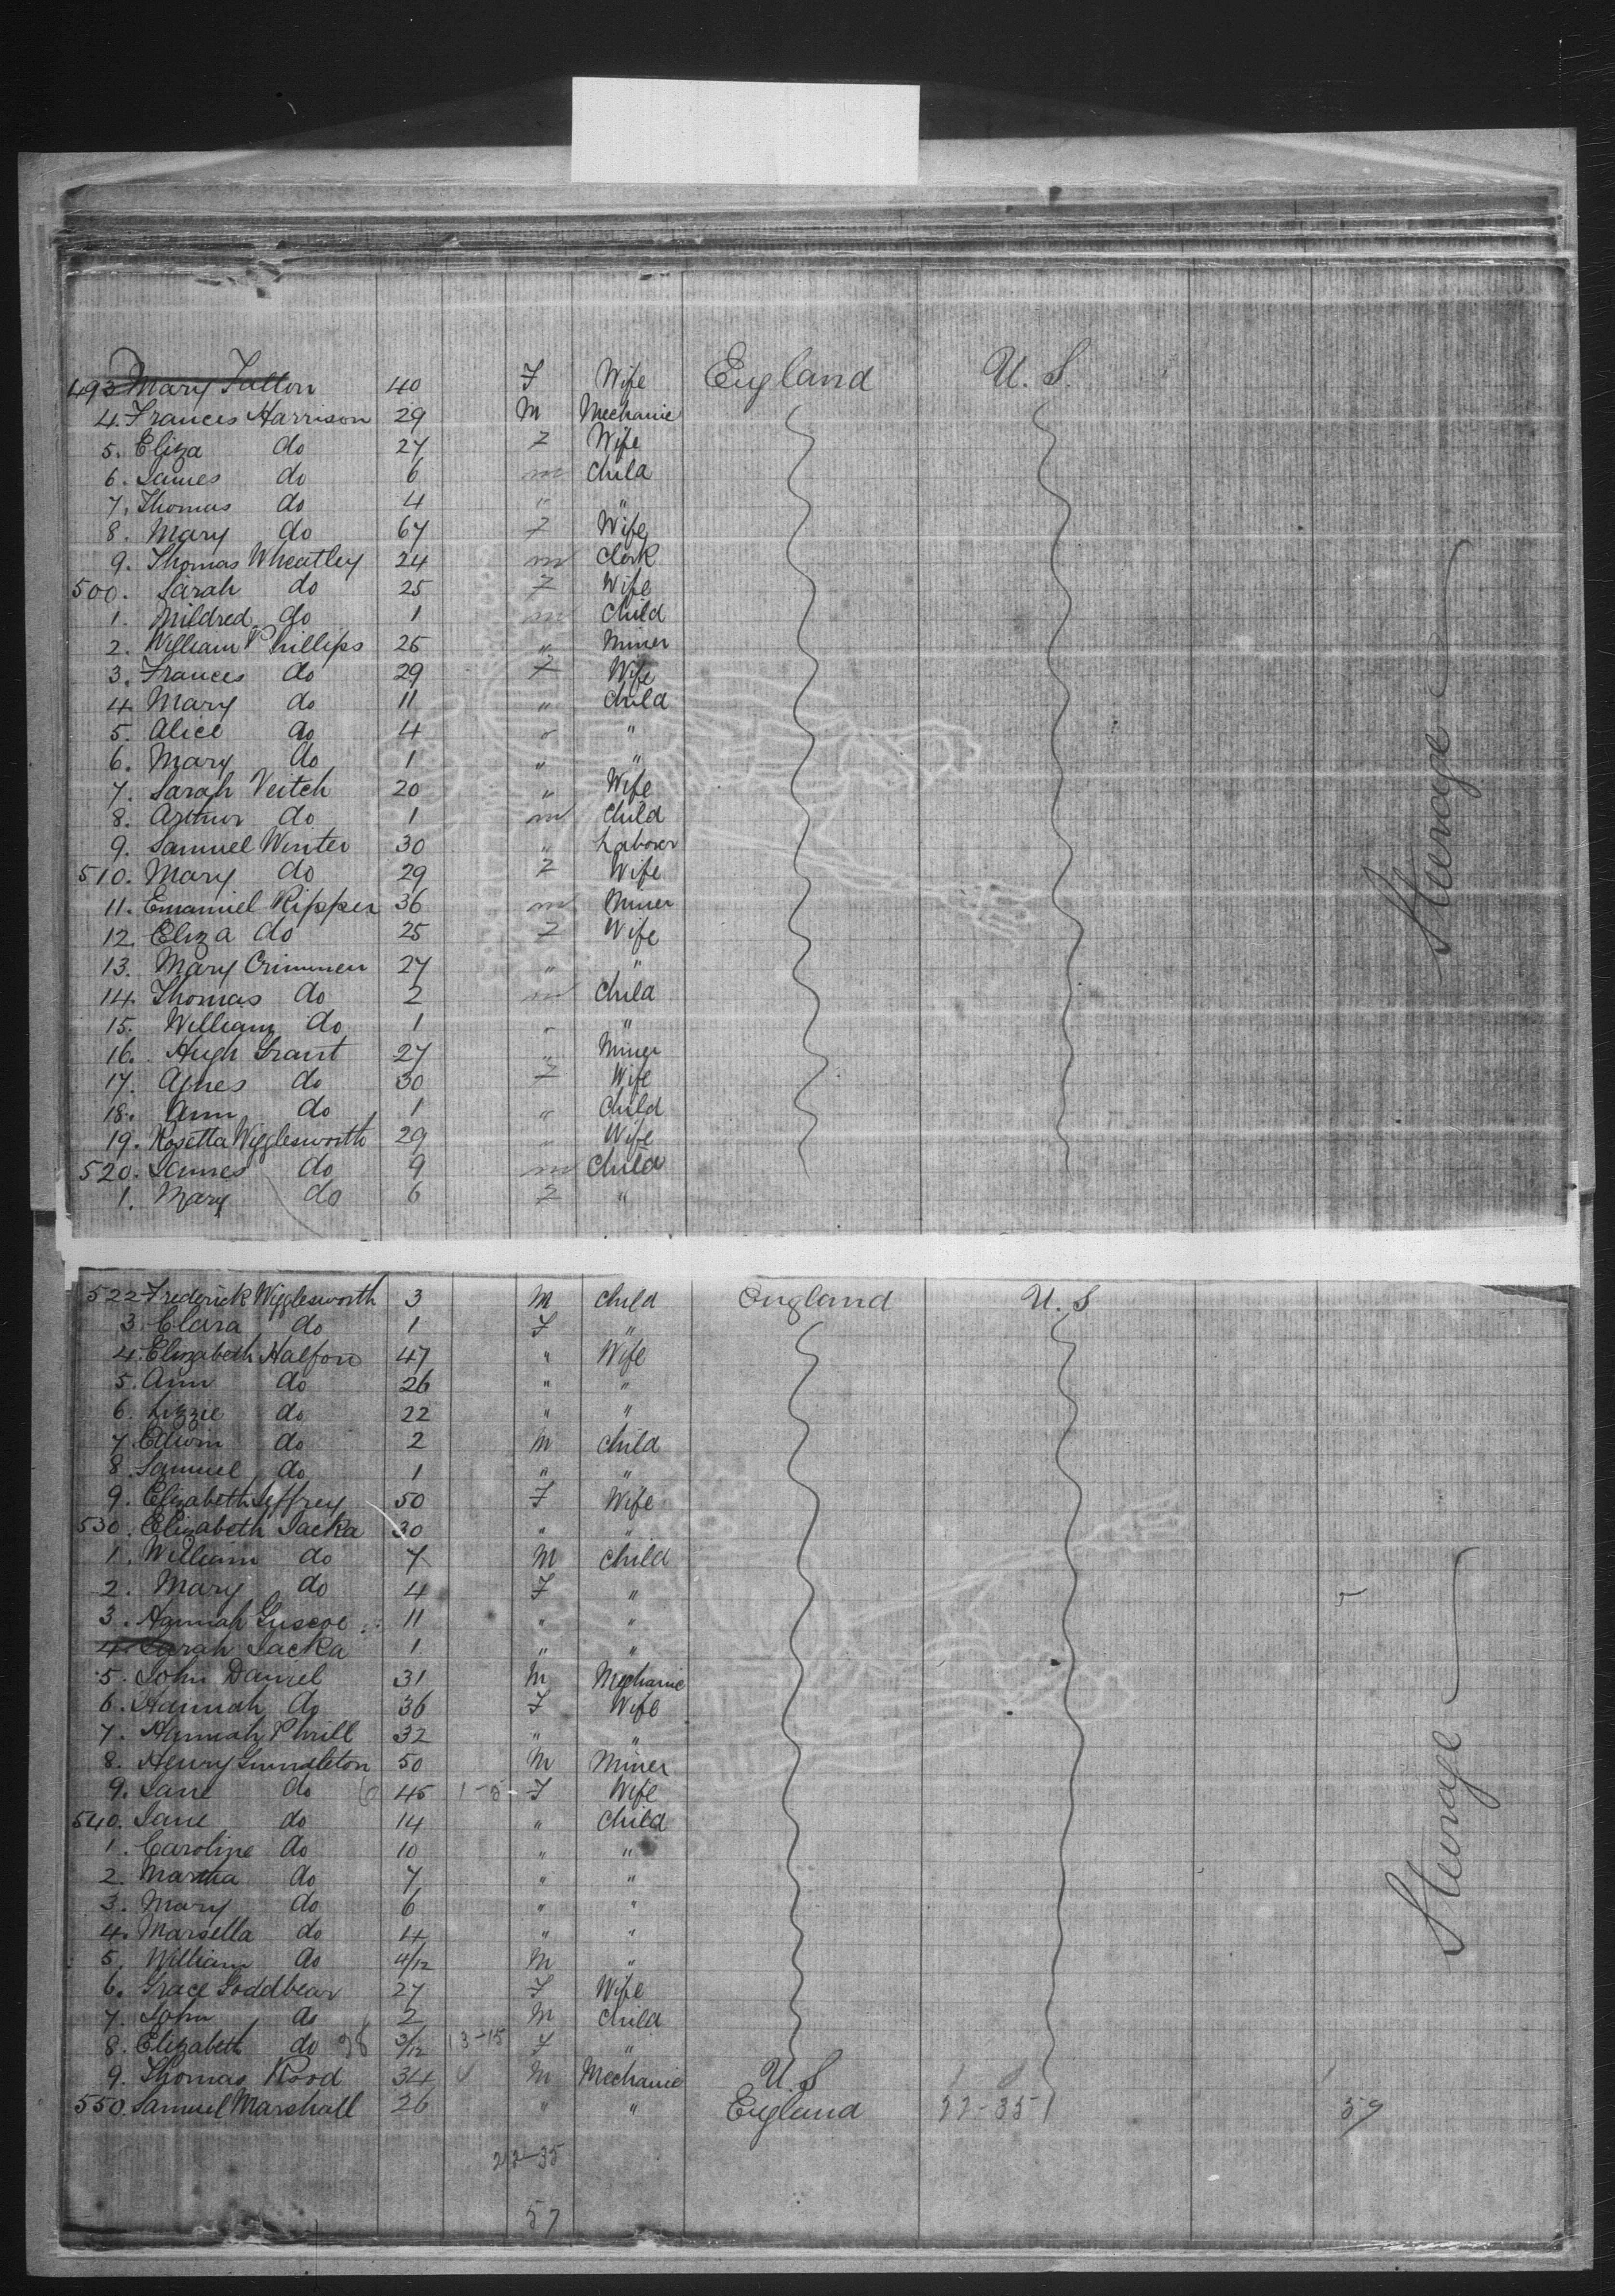 493 Mary Fulton 40 F Wife England U. S.
4. Frances Harrison 29 M Mechanic
5. Eliza do 27 F Wife
6. James do 6 m Child
7. Thomas do 4 " "
8. Mary do 67 F Wife
9. Thomas Wheatley 24 m Clerk
500. Sarah do 25 F Wife
1. Mildred do 1 m Child
2. William Phillips 25 " Miner
3. Frances do 29 F Wife
4 Mary do 11 " Child
5. Alice do 4 " "
6. Mary do 1 " "
7. Sarah Veitch 20 " Wife
8. Arthur do 1 m Child
9. Samuel Winter 30 " Laborer
510. Mary do 29 F Wife
11. Emanuel Ripper 36 m Miner
12. Eliza do 25 F Wife
13. Mary Crimmen 27 " "
14. Thomas do 2 m Child
15. William do 1 " "
16. Hugh Grant 27 " Miner
17. Agnes do 30 F Wife
18. Ann do 1 " Child
19. Rosetta Wigglesworth 29 " Wife
520. James do 9 m Child
1. Mary do 6 F "
Steerage
522 Frederick Wigglesworth 3 M Child England U. S
3. Clara do 1 F "
4. Elizabeth Halfon 47 " Wife
5. Ann do 26 " "
6. Lizzie do 22 " "
7. Edwin do 2 M Child
8. Samuel do 1 " "
9. Elizabeth Jeffrey 50 F Wife
530. Elizabeth Jacka 30 " "
1. William do 7 M Child
2. Mary do 4 F "
3. Hannah 11 " "
4. Sarah Jacka 1 " "
5. John Daniel 31 M Mechanic
6. Hannah do 36 F Wife
7. Hannah 32 " "
8. Henry 50 M Miner
9. Jane do 45 1-5 F Wife
540. Jane do 14 " Child
1. Caroline do 10 " "
2. Martha do 7 " "
3. Mary do 6 " "
4. Marsella do 4 " "
5. William do 4/12 M "
6. Grace Goddbear 27 F Wife
7. John do 2 M Child
8. Elizabeth do 3/12 13-15 F "
9. Thomas Rood 34 M Mechanic U. S
550. Samuel Marshall 26 " " England 22-35 59
Steerage
22-35
57